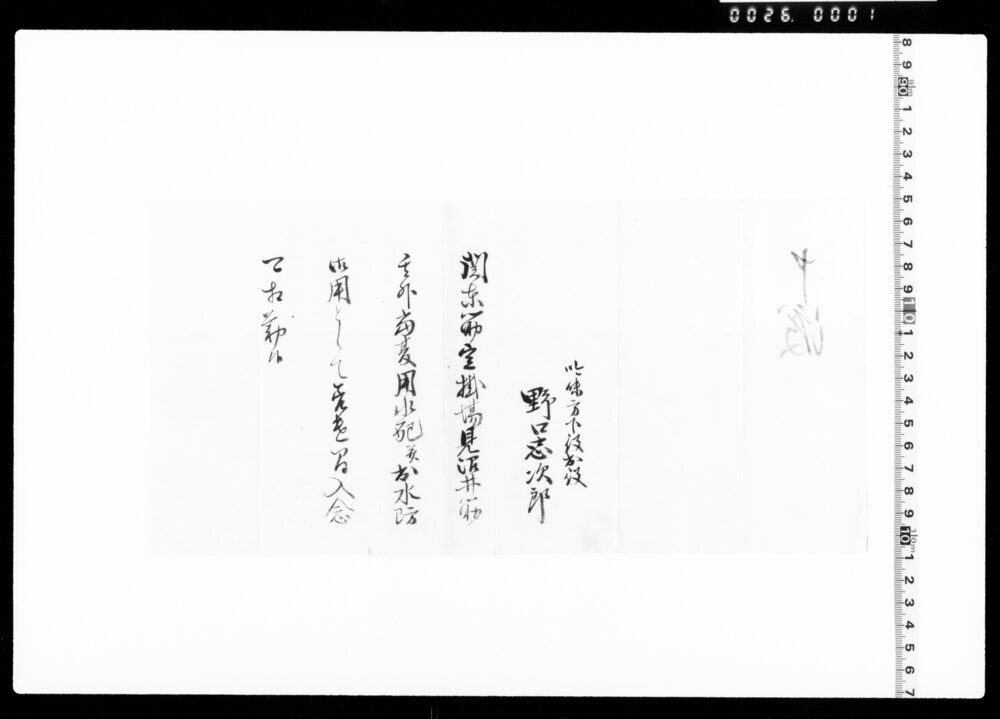 0026. 0001
申渡
吟味方下役出役
野口志次郎
関東筋定掛場見沼井筋
其外当夏用水配并出水防
御用として 入念
可相勤候
8 9 90 1 2 3 4 5 6 7 8 9 10 1 2 3 4 5 6 7 8 9 10 1 2 3 4 5 6 7